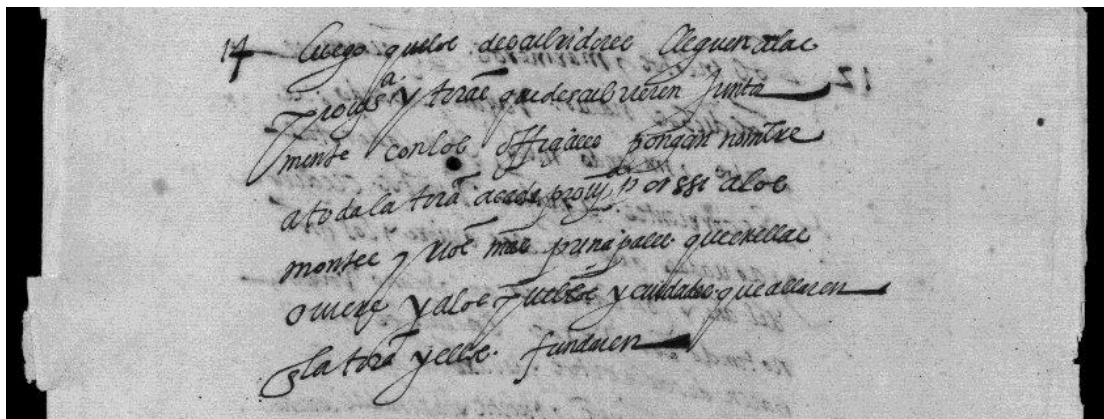 14 luego quelos descubridores lleguen alas
prouy.ª y trās que descubrieren Junta
mente con los offiçiales pongan nombre
a toda la trā a cada prouy.ª por ssi alos
montes y rios mas prinçipales que en ellas
ouiere y alos pueblos y ciudades que allaren
en la trā y ellos fundaren